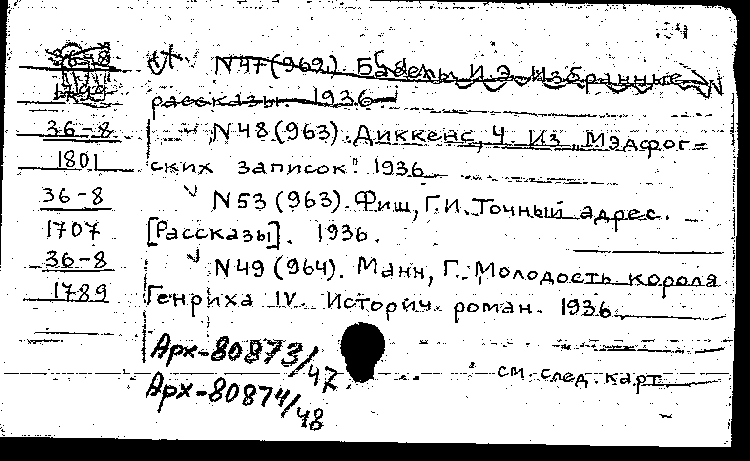 N47(962). Бабель, И.Э. Избранные
1799 рассказы. 1936.
36-8 N48(963). Диккенс, Ч. Из „Мэдфог=
1801 ских записок". 1936
36-8 N53(963). Фиш, Г.И. Точный адрес.
1707 [Рассказы]. 1936.
36-8 N49(964). Манн, Г. Молодость короля
1789 Генриха IV. Историч. роман. 1936.
Арх-80873/47
Арх-80874/48
см. след. карт.